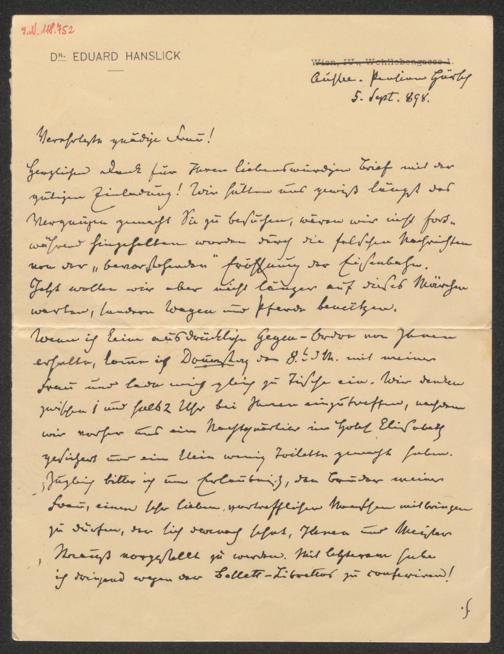 I.N. 118.752
Dr. EDUARD HANSLICK
Wien, IV., Wohllebengasse 1.
Aussee. Pension
5. Sept. 898.
Verehrteste gnädige Frau!
Herzlichen Dank für Ihren liebenswürdigen Brief mit der
gütigen Einladung! Wir hätten uns gewiß längst das
Vergnügen gemacht Sie zu besuchen, wären wir nicht fort-
während hingehalten worden durch die falschen Nachrichten
von der „bevorstehenden" Eröffnung der Eisenbahn.
Jetzt wollen wir aber nicht länger auf dieses Märchen
warten, sondern Wagen und Pferde benützen.
Wenn ich keine ausdrückliche Gegen-Ordre von Ihnen
erhalte, komme ich Donnerstag den 8. d. M. mit meiner
Frau und lade mich gleich zu Tische ein. Wir denken
zwischen 1 und halb 2 Uhr bei Ihnen einzutreffen, nachdem
wir vorher uns ein Nachtquartier im Hotel Elisabeth
gesichert und ein klein wenig Toilette gemacht haben.
Zugleich bitte ich um Erlaubniß, den Bruder meiner
Frau, einen sehr lieben, vortrefflichen Menschen mitbringen
zu dürfen, der sich darnach sehnt, Ihnen und Meister
Strauß vorgestellt zu werden. Mit letzterem habe
ich dringend wegen der Ballett-Librettos zu conferiren!